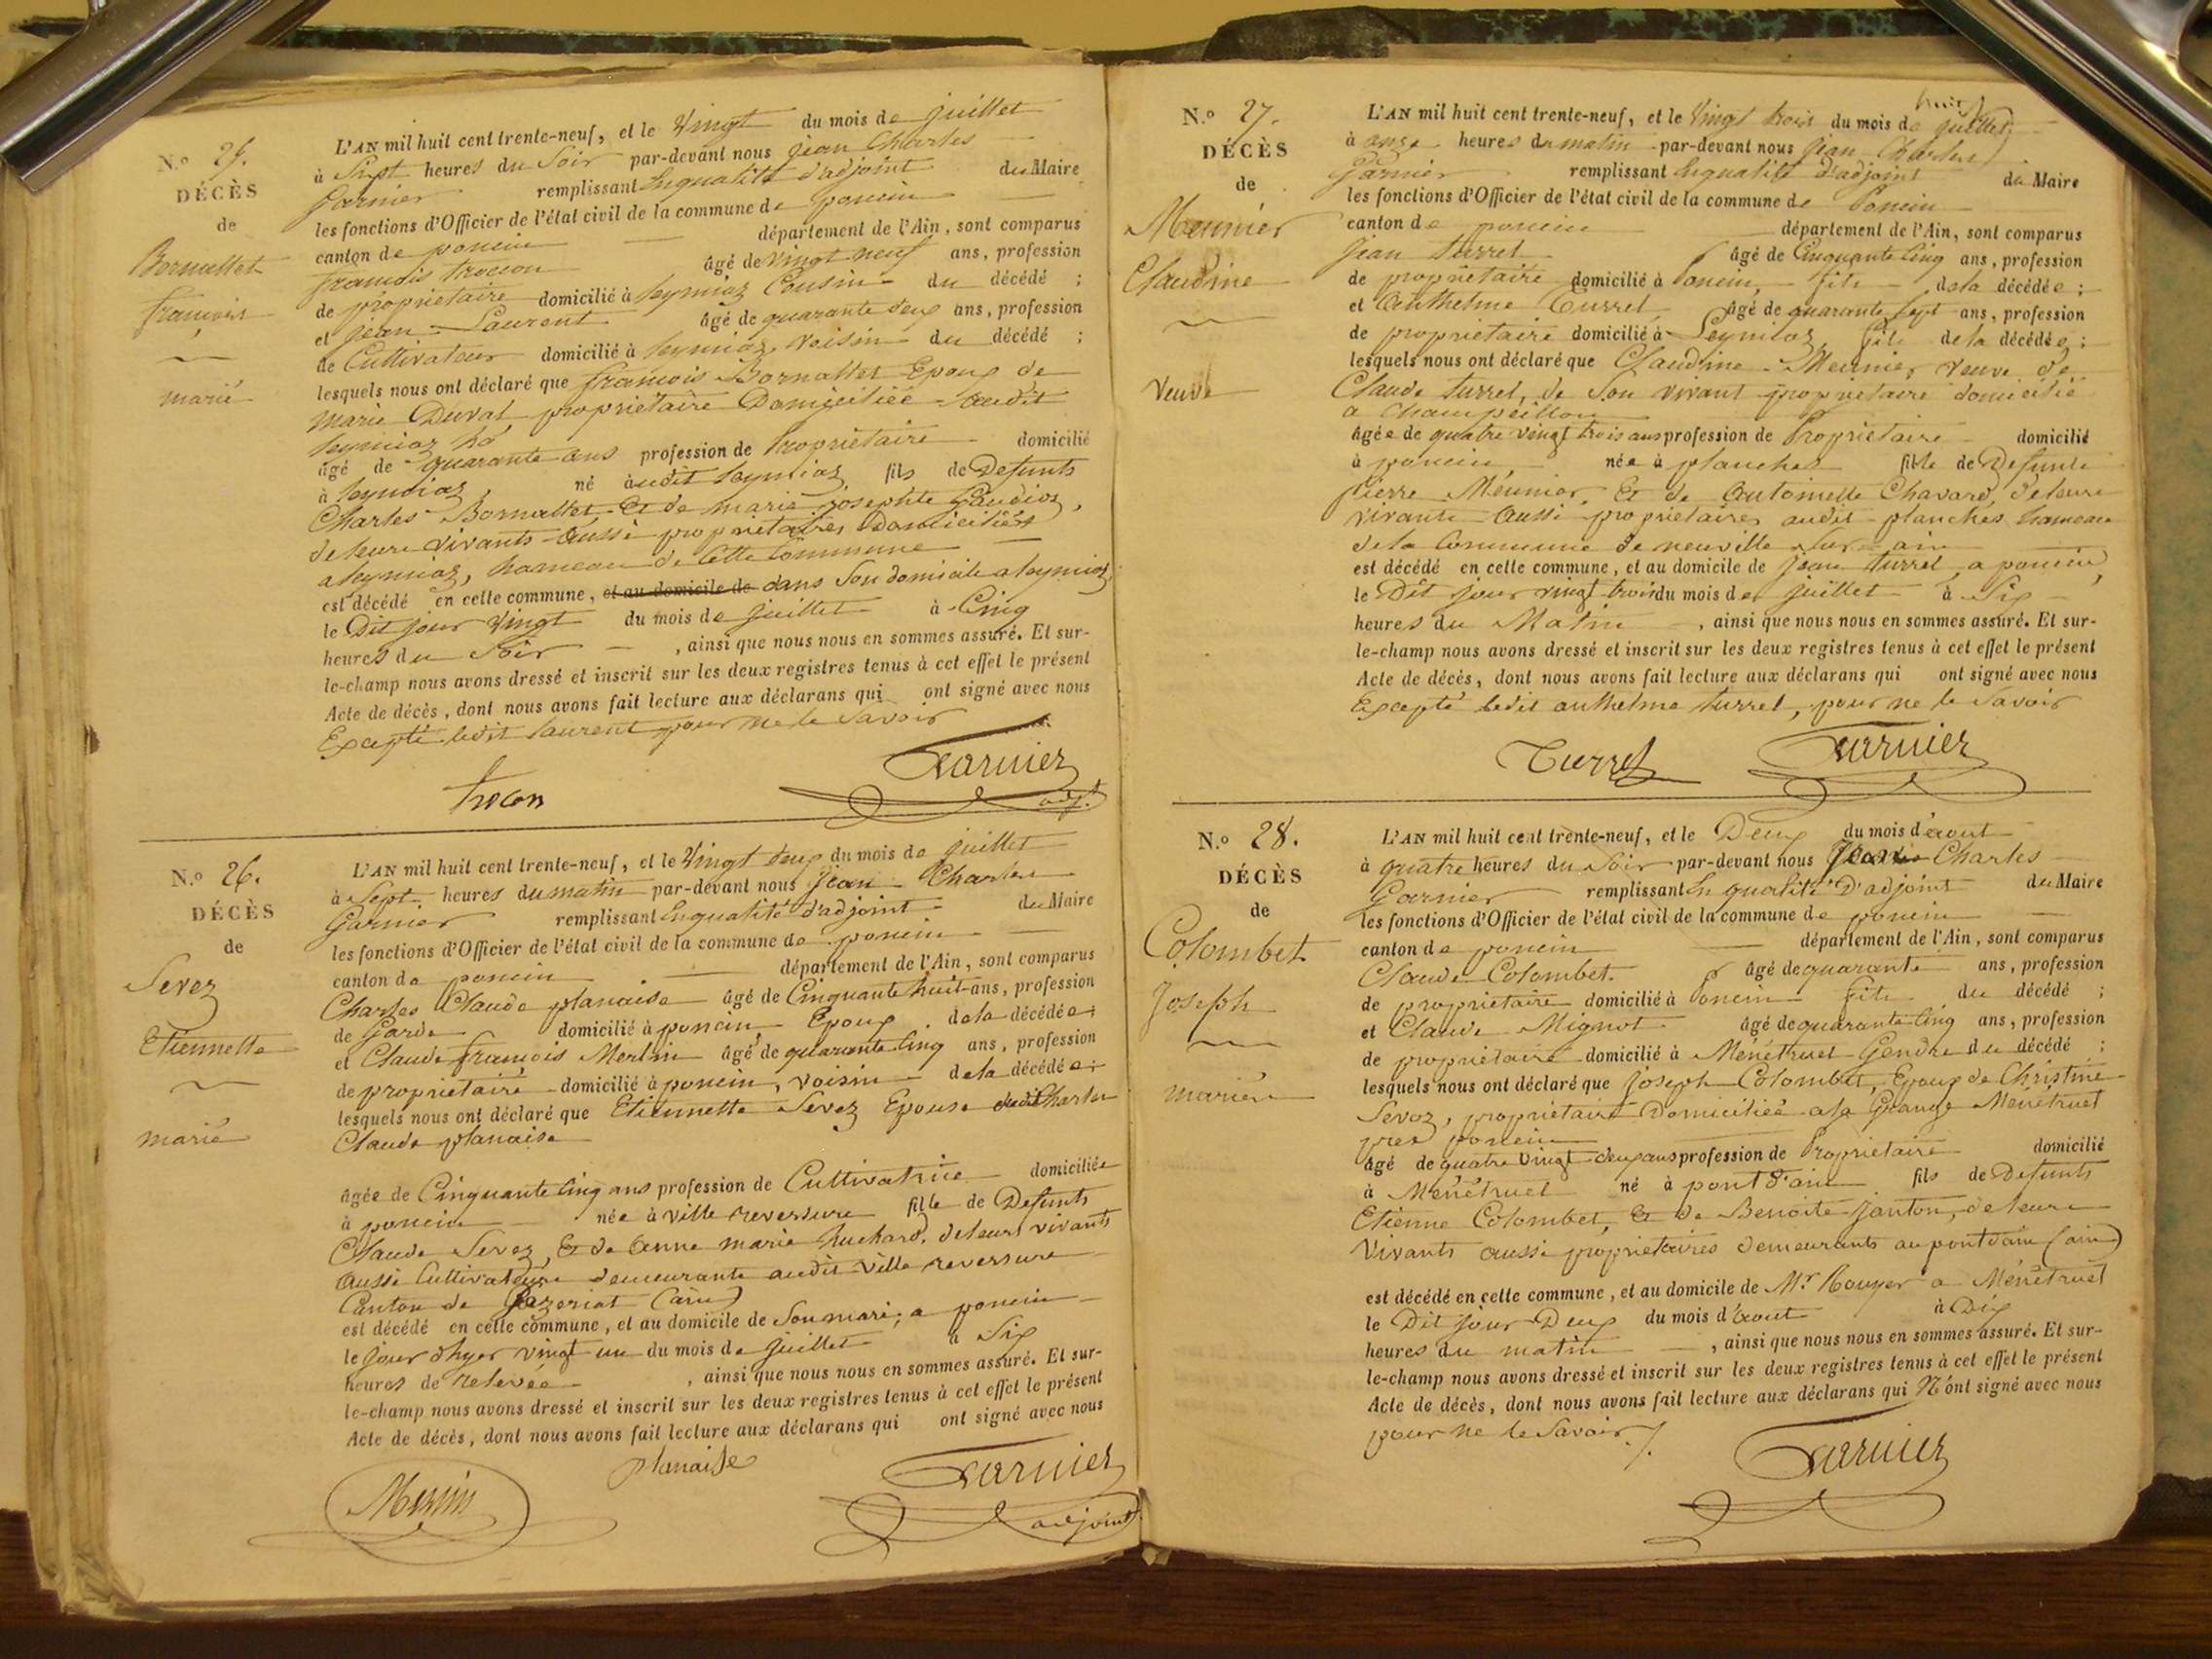 N.º 25.
DÉCÈS
de
Bornattet
françois
marié
L'AN mil huit cent trente-neuf, et le Vingt du mois de juillet
à Sept heures du Soir par-devant nous jean Charles
Garnier remplissant Enqualité d'adjoint du Maire
les fonctions d'Officier de l'état civil de la commune de poncin
canton de poncin département de l'Ain, sont comparus
françois trocon âgé de vingt neuf ans, profession
de propriétaire domicilié à leymiaz Cousin du décédé ;
et jean Laurent âgé de quarante deux ans, profession
de Cultivateur domicilié à leymiaz, voisin du décédé ;
lesquels nous ont déclaré que françois Bornattet Epoux de
marie Duval propriétaire Domiciliée audit
leymiaz
âgé de quarante ans profession de Propriétaire domicilié
à leymiaz, né audit leymiaz, fils de Defunts
Charles Bornattet Et de marie josephte
deleurs vivants aussi propriétaires Domiciliés
a leymiaz, hameau de Cette Commune
est décédé en cette commune, et au domicile de dans Son domicile a leymiaz,
le Dit jour Vingt du mois de juillet à Cinq
heures du Soir , ainsi que nous nous en sommes assuré. Et sur-
le-champ nous avons dressé et inscrit sur les deux registres tenus à cet effet le présent
Acte de décès, dont nous avons fait lecture aux déclarans qui ont signé avec nous
Excepté ledit laurent pour ne le Savoir
trocon Garnier
adj.t
N.º 26.
DÉCÈS
de
Sevez
Etiennette
marié
L'AN mil huit cent trente-neuf, et le Vingt deux du mois de juillet
à Sept heures du matin par-devant nous jean Charles
Garnier remplissant Enqualité d'adjoint du Maire
les fonctions d'Officier de l'état civil de la commune de poncin
canton de poncin département de l'Ain, sont comparus
Charles Claude planaise âgé de Cinquante huit ans, profession
de Garde domicilié à poncin Epoux dela décédée ;
et Claude françois Merlin âgé de quarante cinq ans, profession
de propriétaire domicilié à poncin, voisin dela décédée ;
lesquels nous ont déclaré que Etiennette Sevez Epouse dudit Charles
Claude planaise
âgée de Cinquante cinq ans profession de Cultivatrice domiciliée
à poncin née à ville reversure fille de Defunts
Claude Sevez, Et de anne marie huchard, deleurs vivants
aussi Cultivateurs demeurants audit ville reversure
Canton de (ain)
est décédé en cette commune, et au domicile de Son mari, a poncin
le jour d'hyer vingt un du mois de juillet à Six
heures de relevée , ainsi que nous nous en sommes assuré. Et sur-
le-champ nous avons dressé et inscrit sur les deux registres tenus à cet effet le présent
Acte de décès, dont nous avons fait lecture aux déclarans qui ont signé avec nous
Merlin planaise Garnier
adjoint
N.º 27.
DÉCÈS
de
Meunier
Claudine
veuve
L'AN mil huit cent trente-neuf, et le Vingt trois du mois de juillet
à onze heures du matin par-devant nous jean Charles
Garnier remplissant Enqualité d'adjoint du Maire
les fonctions d'Officier de l'état civil de la commune de Poncin
canton de poncin département de l'Ain, sont comparus
jean turrel âgé de Cinquante Cinq ans, profession
de propriétaire domicilié à Poncin, fils dela décédée ;
et Anthelme Turrel âgé de quarante Sept ans, profession
de propriétaire domicilié à Leymiaz, fils dela décédée ;
lesquels nous ont déclaré que Claudine Meunier veuve de
Claude turrel, de Son vivant propriétaire domicilié
a Champeillon
âgée de quatre vingt trois ans profession de Propriétaire domicilié
à poncin, née à planches fille de Defunts
pierre Meunier, Et de antoinette Chavard, deleurs
vivants aussi propriétaires audit planches hameau
dela Commune de neuville sur ain
est décédé en cette commune, et au domicile de jean turrel a poncin,
le Dit jour vingt trois du mois de juillet à Six
heures du Matin , ainsi que nous nous en sommes assuré. Et sur-
le-champ nous avons dressé et inscrit sur les deux registres tenus à cet effet le présent
Acte de décès, dont nous avons fait lecture aux déclarans qui ont signé avec nous
Excepté ledit anthelme turrel, pour ne le Savoir
Turrel Garnier
N.º 28.
DÉCÈS
de
Colombet
Joseph
mariés
L'AN mil huit cent trente-neuf, et le Deux du mois d'aout
à quatre heures du Soir par-devant nous Jean Charles
Garnier remplissant En qualité D'adjoint du Maire
les fonctions d'Officier de l'état civil de la commune de poncin
canton de poncin département de l'Ain, sont comparus
Claude Colombet. âgé de quarante ans, profession
de propriétaire domicilié à Poncin fils du décédé ;
et Claude Mignot âgé de quarante cinq ans, profession
de propriétaire domicilié à Ménétruel Gendre du décédé ;
lesquels nous ont déclaré que joseph Colombet, Epoux de Christine
Sevoz, propriétaire Domiciliée ala Grange Ménétruel
près poncin
âgé de quatre vingt deux ans profession de Propriétaire domicilié
à Ménétruel né à pont d'ain fils de Defunts
Etienne Colombet, Et de Benoite janton, deleurs
vivants aussi propriétaires demeurants au pont dain (ain)
est décédé en cette commune, et au domicile de Mr Rouyer a Ménétruel
le Dit jour Deux du mois d'aout à Dix
heures du matin , ainsi que nous nous en sommes assuré. Et sur-
le-champ nous avons dressé et inscrit sur les deux registres tenus à cet effet le présent
Acte de décès, dont nous avons fait lecture aux déclarans qui N'ont signé avec nous
pour ne le Savoir./.
Garnier